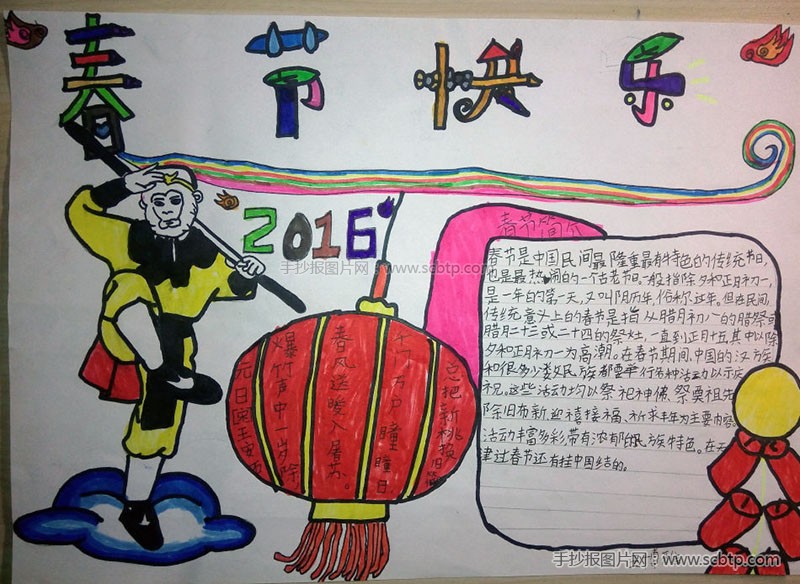 春节快乐
2016
手抄报图片网:www.scbtp.com
春节简介
春节是中国民间最隆重最有特色的传统节日,
也是最热闹的一个古老节日。一般指除夕和正月初一,
是一年的第一天,又叫阴历年,俗称过年。但在民间,
传统意义上的春节是指从腊月初八的腊祭或
腊月二十三或二十四的祭灶,一直到正月十五其中以除
夕和正月初一为高潮。在春节期间,中国的汉族
和很多少数民族都要举行各种活动以示庆
祝。这些活动均以祭祀神佛、祭奠祖先
除旧布新、迎禧接福、祈求丰年为主要内容。
活动丰富多彩带有浓有民族特色。在天
津过春节还有挂中国结的。
元日 王安石
爆竹声中一岁除
春风送暖入屠苏。
千门万户曈曈日
总把新桃换旧符
手抄报图片网:www.scbtp.com